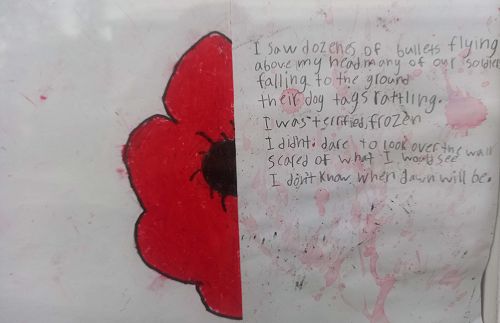 I saw dozenes of bullets flying
above my head many of our soldier
falling to the ground
their dog tags rattling.
I was terrified, frozen
I didn't dare to look over the wall
scared of what I would see
I don't know when dawn will be.